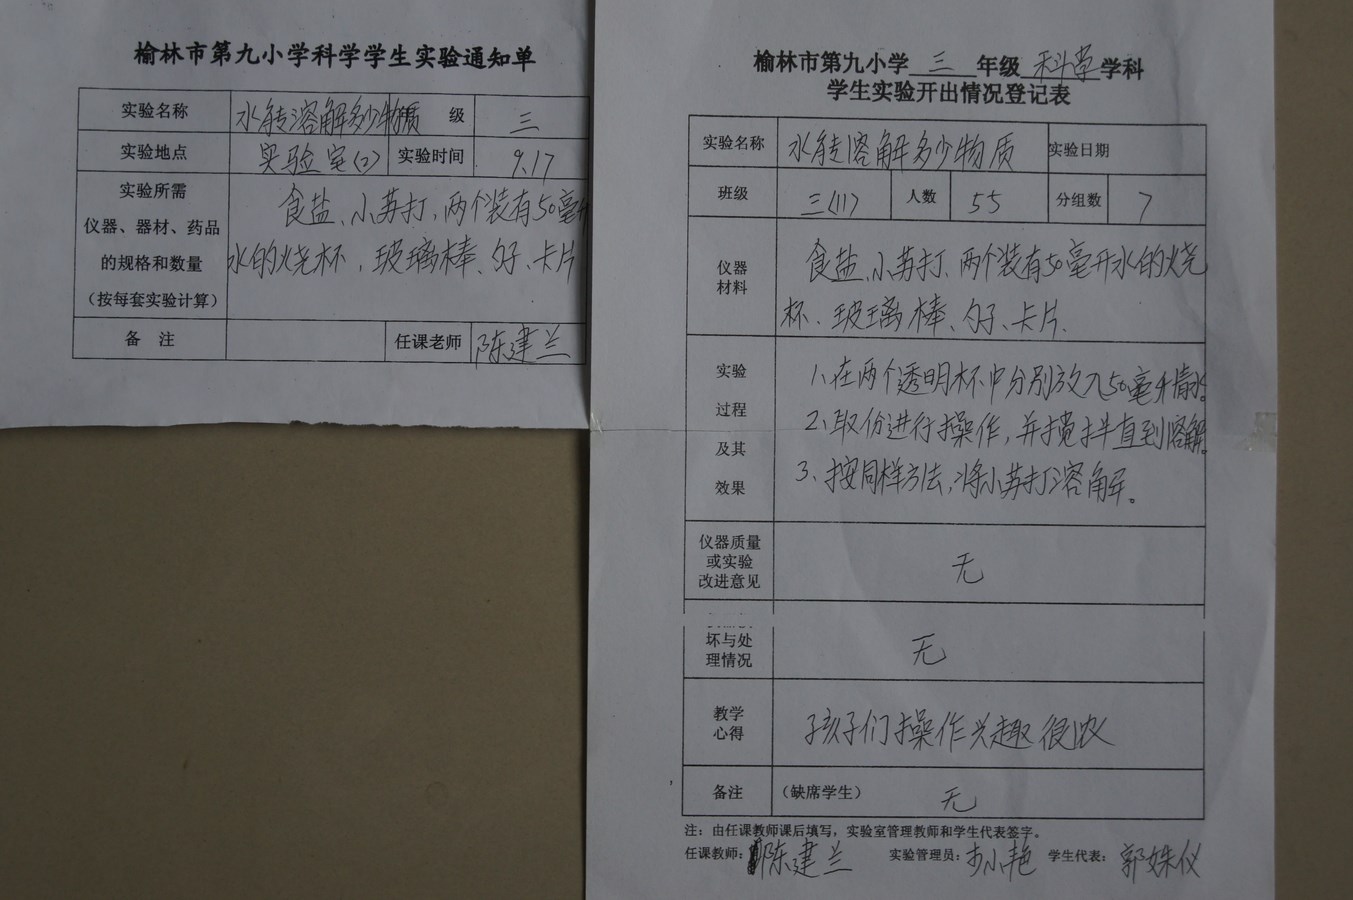 榆林市第九小学科学学生实验通知单
实验名称 水能溶解多少物质 级 三
实验地点 实验室(2) 实验时间 9.17
实验所需
仪器、器材、药品
的规格和数量
（按每套实验计算）
食盐、小苏打、两个装有50毫升
水的烧杯、玻璃棒、勺子、卡片
备 注 任课老师 陈建兰
榆林市第九小学 三 年级 科学 学科
学生实验开出情况登记表
实验名称 水能溶解多少物质 实验日期
班级 三(1) 人数 55 分组数 7
仪器
材料
食盐、小苏打、两个装有50毫升水的烧
杯、玻璃棒、勺子、卡片、
实验
过程
及其
效果
1、在两个透明杯中分别放入50毫升清水。
2、取份进行操作,并搅拌直到溶解。
3、按同样方法,将小苏打溶解。
仪器质量
或实验
改进意见
无
坏与处
理情况
无
教学
心得
孩子们操作兴趣很浓
备注 （缺席学生） 无
注：由任课教师课后填写，实验室管理教师和学生代表签字。
任课教师：陈建兰 实验管理员： 小艳 学生代表： 郭姝仪